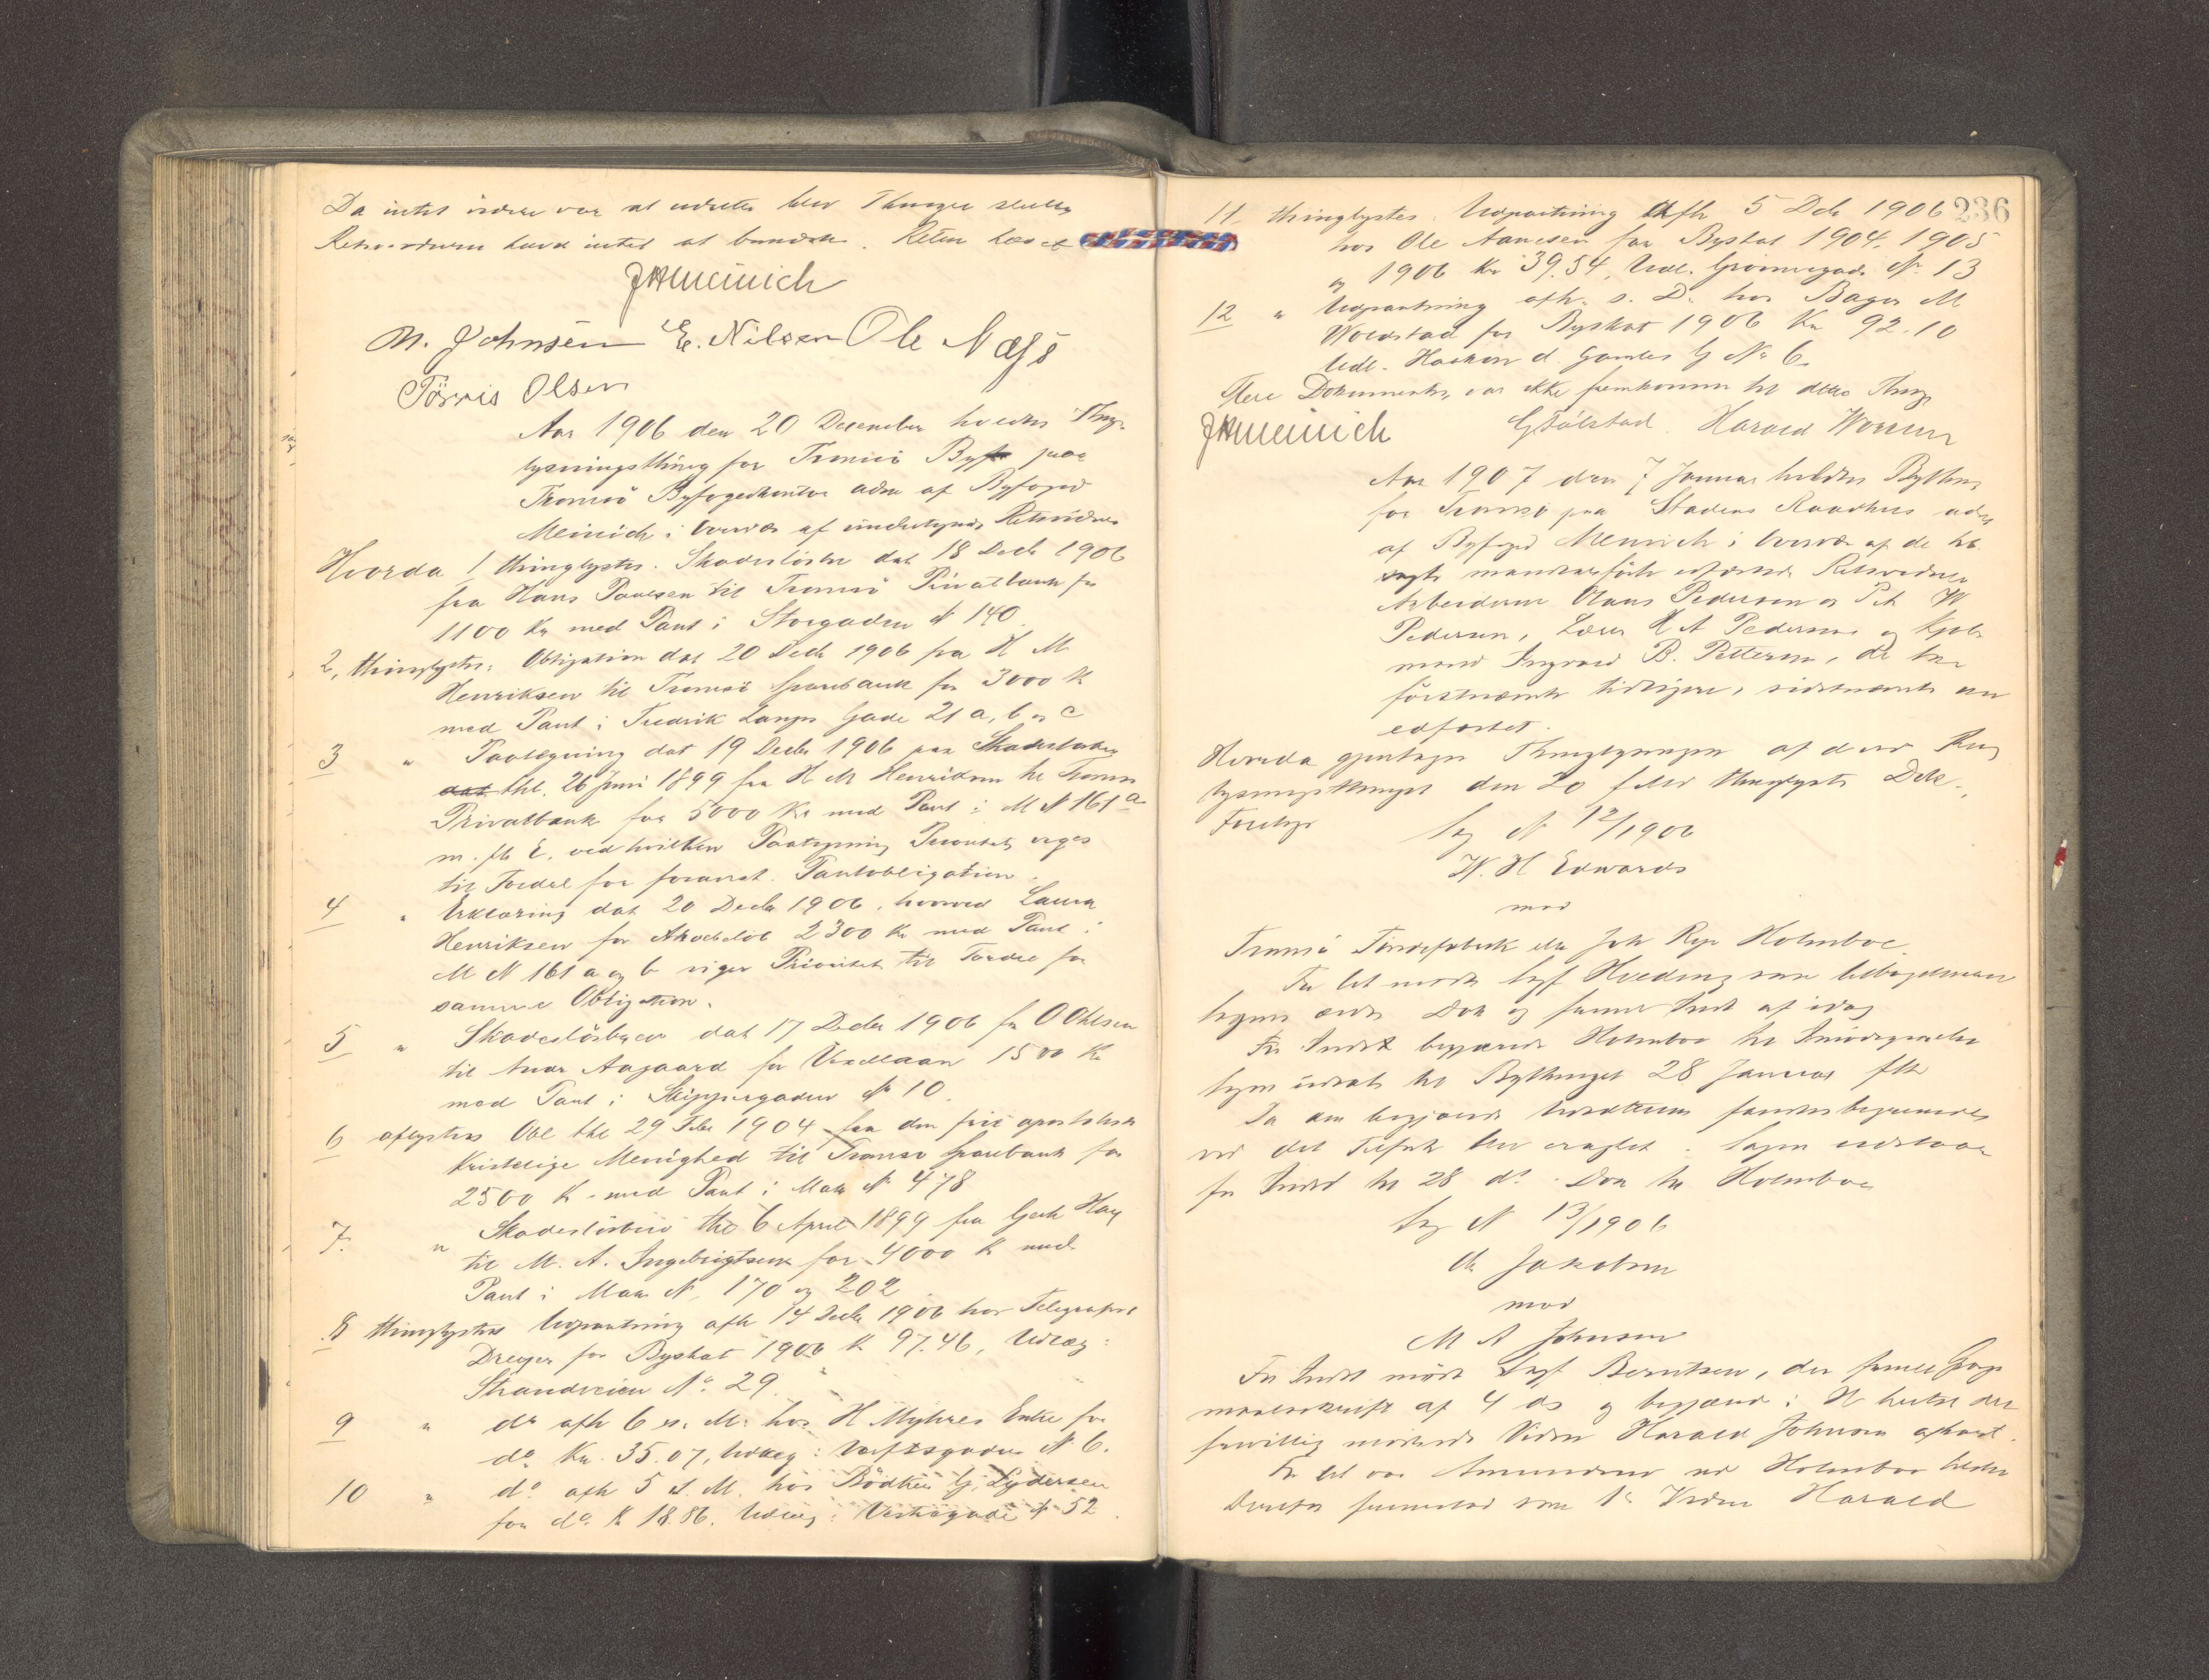 Da intet videre var at udrette blev Thinget sluttet
Retsvidnerne havde intet at bemærke. Retten hævet
JHMeinich
M. Johnsen E. Nilsen Ole Næss
Törris Olsen
Aar 1906 den 20 December holdtes Thing-
lysningsthing for Tromsö By paa
Tromsö Byfogedkontor adm af Byfoged
Meinich i Overvær af undertegnede Retsvidner
Hvorda 1 thinglystes. Skadeslösbr dat 18 Decb 1906
fra Hans Paulsen til Tromsö Privatbank for
1100 Kr med Pant i Storgaden N 140.
2, thinglystes: Obligation dat 20 Decb 1906 fra H M
Henriksen til Tromsö Sparebank for 3000 K
med Pant i Fredrik Langes Gade 21 a, b og c
3 " Paategning dat 19 Decbr 1906 paa Skadeslösbrev
dat thl. 26 Juni 1899 fra H M Henriksen til Tromsö
Privatbank for 5000 Kr med Pant i M N 161 a
m. fl E. ved hvilken Paategning Prioritet viges
til Fordel for foranst. Pantobligation.
4 " Erklæring dat 20 Decbr 1906, hvorved Laura
Henriksen for 2300 Kr med Pant i
M N 161 a og b viger Prioritet til Fordel for
samme Obligation.
5 " Skadeslösbrev dat 17 Decbr 1906 fra O Ohlsen
til Andr Aagaard for Vexellaan 1500 Kr
med Pant i Skippergaden N 10.
6 aflystes Obl thl 29 Febr 1904 fra den frie apostoliske
kristelige Menighed til Tromsö Sparebank for
2500 K med Pant i Matr N 478
7. " Skadeslösbrev thl 6 April 1899 fra Gerh Hay
til M. A. Ingebrigtsen for 4000 K med
Pant i Matr N. 170 og 202.
8 thinglystes Udpantning afh 14 Decbr 1906 hos Telegrafist
Dreyer for Byskat 1906 K 97.46, Udlæg:
Strandveien No. 29.
9 " do afh 6 s. M. hos H Myhres Enke for
do Kr. 35.07, Udlæg: Værftsgaden N 6.
10 " do afh 5 s. M. hos Bödker Lydersen
for do K 18.86. Udlæg: Vestregade N 52.
236
11. thinglystes: Udpantning afh 5 Decb 1906
hos Ole Aanesen for Byskat 1904, 1905
og 1906 Kr 39.54, Udl. Grönnegade No 13
12 " Udpantning afh. s. D. hos Bager M
Woldstad for Byskat 1906 Kr 92.10
Udl. Haakon d. Gamles G No 6.
Flere Dokumenter var ikke fremkommen til dette Thing
JHMeinich G Tölstad. Harald
Aar 1907 den 7 Januar holdtes Bything
for Tromsö paa Stadens Raadhus adm
af Byfoged Meinich i Overvær af de
edfæstede Retsvidner
Arbeiderne Olaus Pedersen og Pet W
Pedersen, Lærer H A Pedersen og Kjöb-
mand Ingvald B. Pettersen, de tre
förstnævnte tidligere, sidstnævnte nu
edfæstet.
Hvorda gjentoges Thinglysningen af de ved Thing
lysningsthinget den 20 f M thinglyste Dok.
Foretoges
Sag N 12/1906
W. H Edwards
mod
Tromsö Töndefabrik eller Joh Rye Holmboe
For Cit mödte Sagf Hveding som
Dok og Indst af idag
For Indst begjærede Holmboe til Imödegaaelse
Sagen udsat til Bythinget 28 Januar
Da den begjærede Udsættelse fandtes
ved det blev eragtet. Sagen udstaar
for Indst til 28 ds. Dok til Holmboe
Sag N 13/1906
Jakobsen
mod
M A Johnsen
For Indst mödte Sagf Berntsen, der
af 4 ds og begjærede i H hertil det
frivillig mödende Vidne Harald Johnsen afhört.
For Cit var Amundsen ved Holmboe tilstede
Derefter fremstod som 1ste Vidne Harald